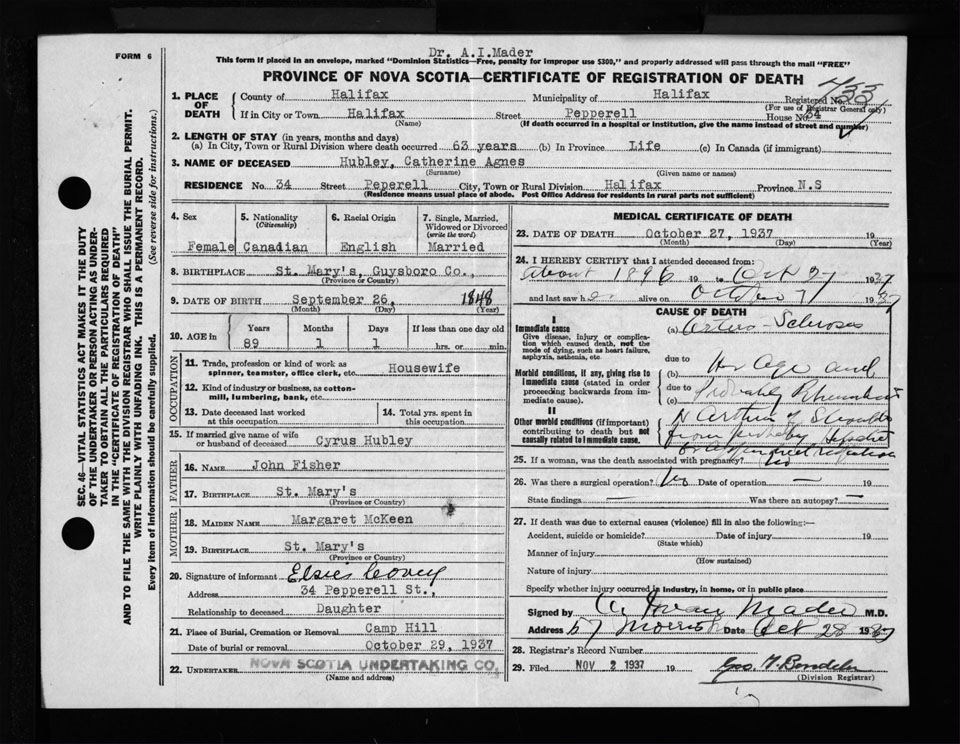 FORM 6
Dr. A.I.Mader
This form if placed in an envelope, marked "Dominion Statistics—Free, penalty for improper use $300," and properly addressed will pass through the mail "FREE"
PROVINCE OF NOVA SCOTIA—CERTIFICATE OF REGISTRATION OF DEATH
1. PLACE OF DEATH
County of Halifax Municipality of Halifax Registered No.
(For use of Registrar General only)
If in City or Town Halifax Street Pepperell House No. 34
(Name) (If death occurred in a hospital or institution, give the name instead of street and number)
2. LENGTH OF STAY (in years, months and days)
(a) In City, Town or Rural Division where death occurred 63 years (b) In Province Life (c) In Canada (if immigrant)
3. NAME OF DECEASED Hubley, Catherine Agnes
(Surname) (Given name or names)
RESIDENCE No. 34 Street Peperell City, Town or Rural Division Halifax Province N.S
(Residence means usual place of abode. Post Office Address for residents in rural parts not sufficient)
4. Sex Female
5. Nationality (Citizenship) Canadian
6. Racial Origin English
7. Single, Married, Widowed or Divorced (write the word) Married
8. BIRTHPLACE St. Mary's, Guysboro Co.,
(Province or Country)
9. DATE OF BIRTH September 26, 1848
(Month) (Day) (Year)
10. AGE in Years Months Days If less than one day old
89 1 1 hrs. or min.
OCCUPATION
11. Trade, profession or kind of work as spinner, teamster, office clerk, etc. Housewife
12. Kind of industry or business, as cotton-mill, lumbering, bank, etc.
13. Date deceased last worked at this occupation
14. Total yrs. spent in this occupation
15. If married give name of wife or husband of deceased Cyrus Hubley
FATHER
16. NAME John Fisher
17. BIRTHPLACE St. Mary's
(Province or Country)
MOTHER
18. MAIDEN NAME Margaret McKeen
19. BIRTHPLACE St. Mary's
(Province or Country)
20. Signature of informant Elsie
Address 34 Pepperell St.,
Relationship to deceased Daughter
21. Place of Burial, Cremation or Removal Camp Hill
Date of burial or removal October 29, 1937
22. UNDERTAKER NOVA SCOTIA UNDERTAKING CO.
(Name and address)
MEDICAL CERTIFICATE OF DEATH
23. DATE OF DEATH October 27, 1937 19
(Month) (Day) (Year)
24. I HEREBY CERTIFY that I attended deceased from:
About 1896 19 to Oct 27 1937
and last saw her alive on October 1937
CAUSE OF DEATH
I
Immediate cause
Give disease, injury or complication which caused death, not the mode of dying, such as heart failure, asphyxia, asthenia, etc
(a) Arterio-Sclerosis
due to
Morbid conditions, if any, giving rise to immediate cause (stated in order proceeding backwards from immediate cause).
(b) Her Age and
due to
(c) Probably
II
Other morbid conditions (if important) contributing to death but not causally related to immediate cause.
25. If a woman, was the death associated with pregnancy? No
26. Was there a surgical operation? No Date of operation — 19
State findings — Was there an autopsy? —
27. If death was due to external causes (violence) fill in also the following:—
Accident, suicide or homicide? Date of injury 19
(State which)
Manner of injury
(How sustained)
Nature of injury
Specify whether injury occurred in industry, in home, or in public place
Signed by A. Ivan Mader M.D.
Address 57 Morris St Date Oct 28 1937
28. Registrar's Record Number
29. Filed NOV 2 1937 19
(Division Registrar)
SEC. 46—VITAL STATISTICS ACT MAKES IT THE DUTY
OF THE UNDERTAKER OR PERSON ACTING AS UNDER-
TAKER TO OBTAIN ALL THE PARTICULARS REQUIRED
IN THE "CERTIFICATE OF REGISTRATION OF DEATH"
AND TO FILE THE SAME WITH THE DIVISION REGISTRAR WHO SHALL ISSUE THE BURIAL PERMIT.
WRITE PLAINLY WITH UNFADING INK. THIS IS A PERMANENT RECORD.
Every item of information should be carefully supplied. (See reverse side for instructions.)